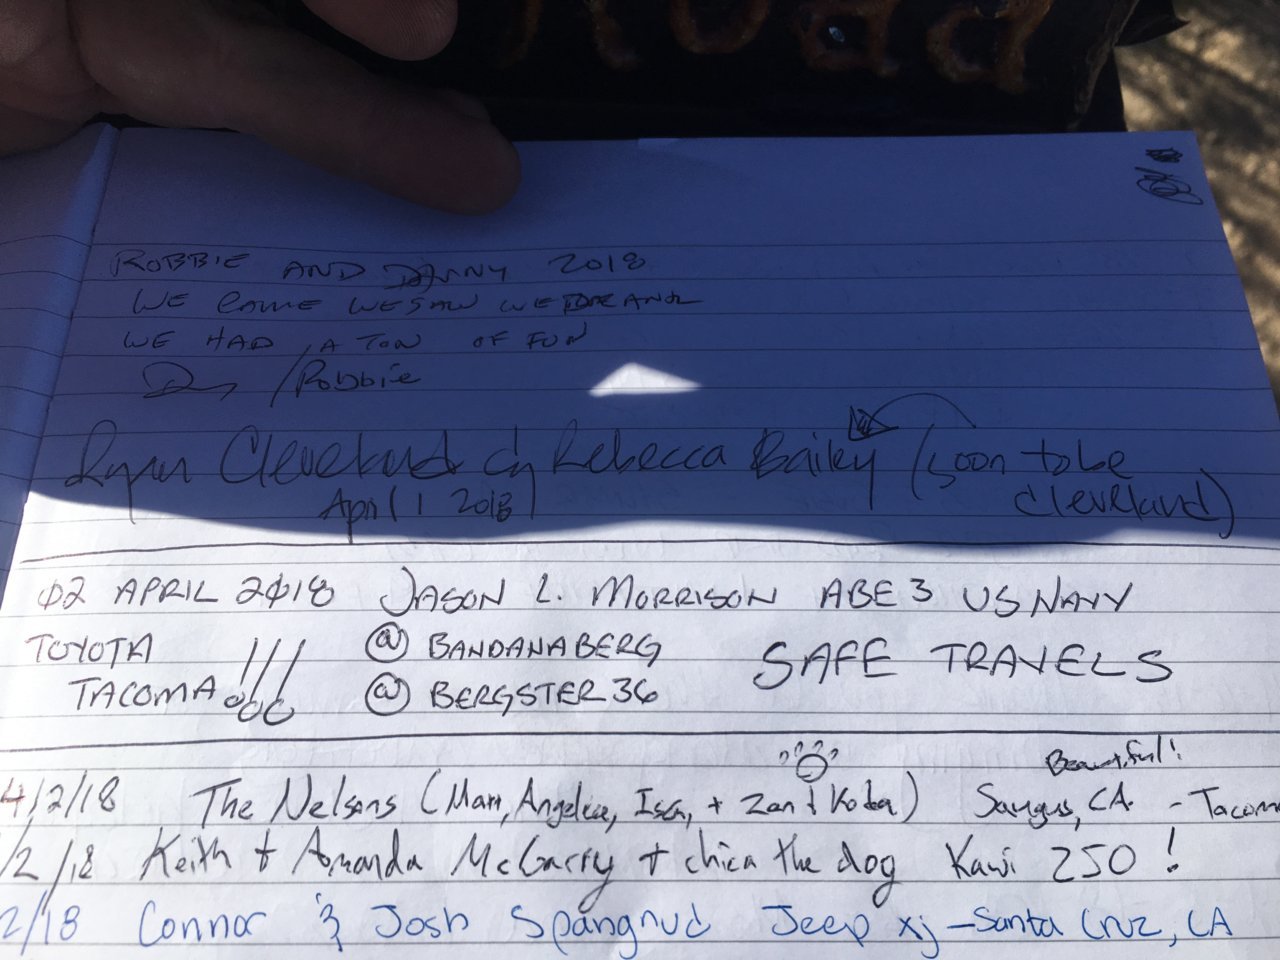 ROBBIE AND DANNY 2018
WE CAME WE SAW WE
WE HAD A TON OF FUN
/Robbie
Ryan Cleveland & Rebecca Bailey (soon to be
Cleveland)
April 1 2018
02 APRIL 2018 JASON L. MORRISON ABE3 US NAVY
TOYOTA @ BANDANABERG SAFE TRAVELS
TACOMA!!! @ BERGSTER36
Beautiful!
4/2/18 The Nelsons (Matt, Angelica, Isca, + Zan + Koda) Saugus, CA. - Tacoma
/2/18 Keith + Amanda McGarry + chica the dog Kawi 250!
2/18 Connor & Josh Spangrud Jeep xj - Santa Cruz, CA